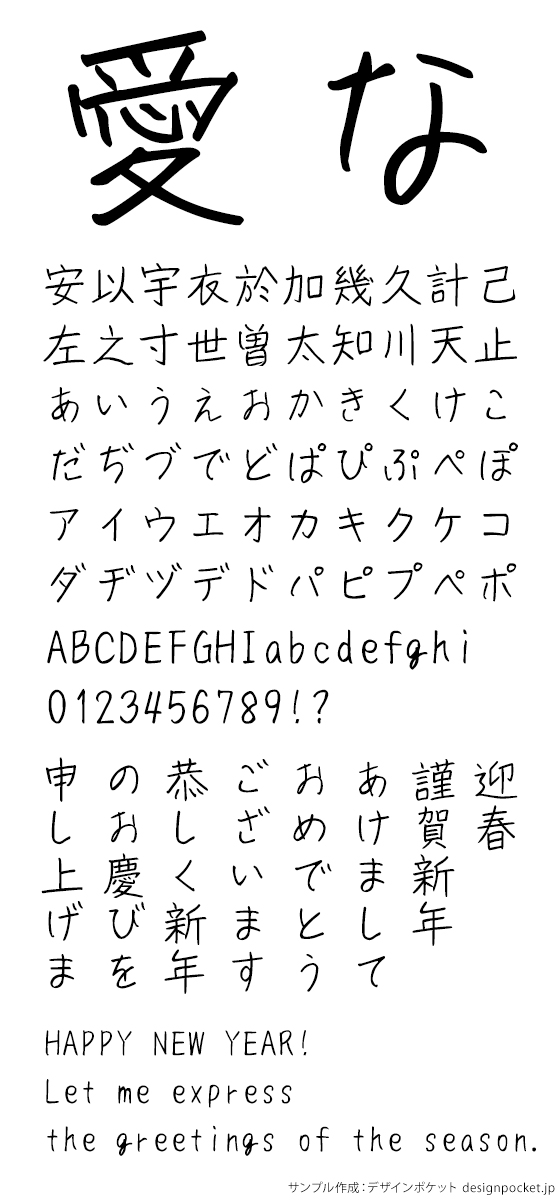 愛な
安以宇衣於加幾久計己
左之寸世曽太知川天止
あいうえおかきくけこ
だぢづでどぱぴぷぺぽ
アイウエオカキクケコ
ダヂヅデドパピプペポ
ABCDEFGHIabcdefghi
0123456789!?
迎春
謹賀新年
あけまして
おめでとう
ございます
恭しく新年
のお慶びを
申し上げま
HAPPY NEW YEAR!
Let me express
the greetings of the season.
サンプル作成：デザインポケット designpocket.jp